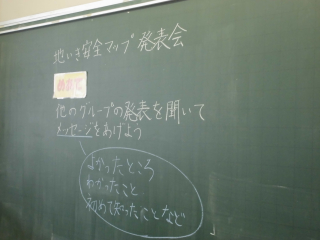 地いき安全マップ発表会
めあて
他のグループの発表を聞いて
メッセージをあげよう
よかったところ
わかったこと
初めて知ったことなど